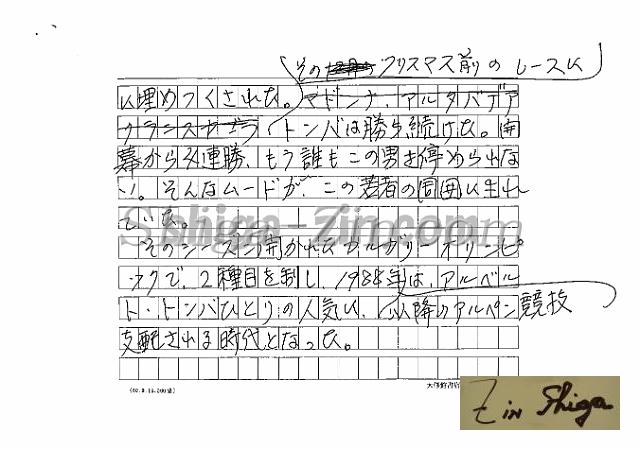 その クリスマス前の レースい
い埋めつくされた。マドンナ、アルタバディア
クランスカゴラ、トンバは勝ち続けた。開
幕から 連勝、もう誰もこの男を停められな
い。そんなムードが、この若者の周囲い生れ
ていた。
そのシーズン開かれたカルガリーオリンピ
ックで、2種目を制し、1988年は、アルベル
ト・トンバひとりの人気い、以降のアルペン競技
支配される時代となった。
Shiga-Zin.com
(62.9.15,200冊)
大修館書店
Z in Shiga